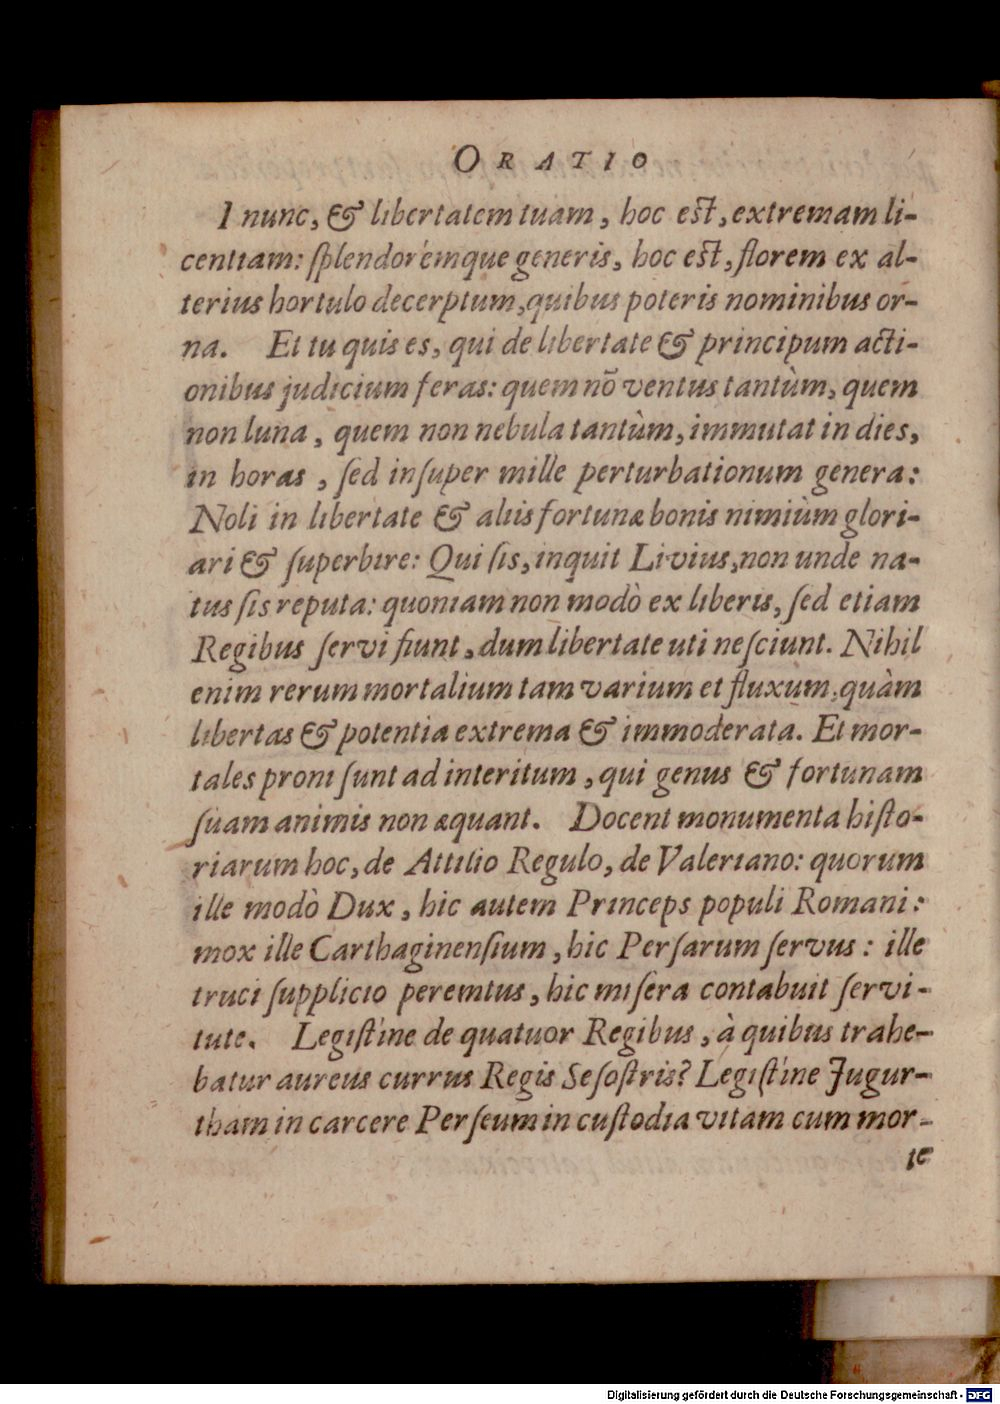 ORATIO
I nunc, & libertatem tuam, hoc est, extremam li-
centiam: ſplendorémque generis, hoc est, florem ex al-
terius hortulo decerptum, quibus poteris nominibus or-
na. Et tu quis es, qui de libertate & principum acti-
onibus judicium feras: quem nõ ventus tantùm, quem
non luna, quem non nebula tantùm, immutat in dies,
in horas, ſed inſuper mille perturbationum genera:
Noli in libertate & aliis fortunæ bonis nimiùm glori-
ari & ſuperbire: Qui ſis, inquit Livius, non unde na-
tus ſis reputa: quoniam non modò ex liberis, ſed etiam
Regibus ſervi fiunt, dum libertate uti neſciunt. Nihil
enim rerum mortalium tam varium et fluxum, quàm
libertas & potentia extrema & immoderata. Et mor-
tales proni ſunt ad interitum, qui genus & fortunam
ſuam animis non æquant. Docent monumenta hiſto-
riarum hoc, de Attilio Regulo, de Valeriano: quorum
ille modò Dux, hic autem Princeps populi Romani:
mox ille Carthaginenſium, hic Perſarum ſervus: ille
truci ſupplicio peremtus, hic miſera contabuit ſervi-
tute. Legiſtíne de quatuor Regibus, à quibus trahe-
batur aureus currus Regis Seſoſtris? Legiſtíne Jugur-
tham in carcere Perſeum in cuſtodia vitam cum mor-
te
Digitalisierung gefördert durch die Deutsche Forschungsgemeinschaft - DFG